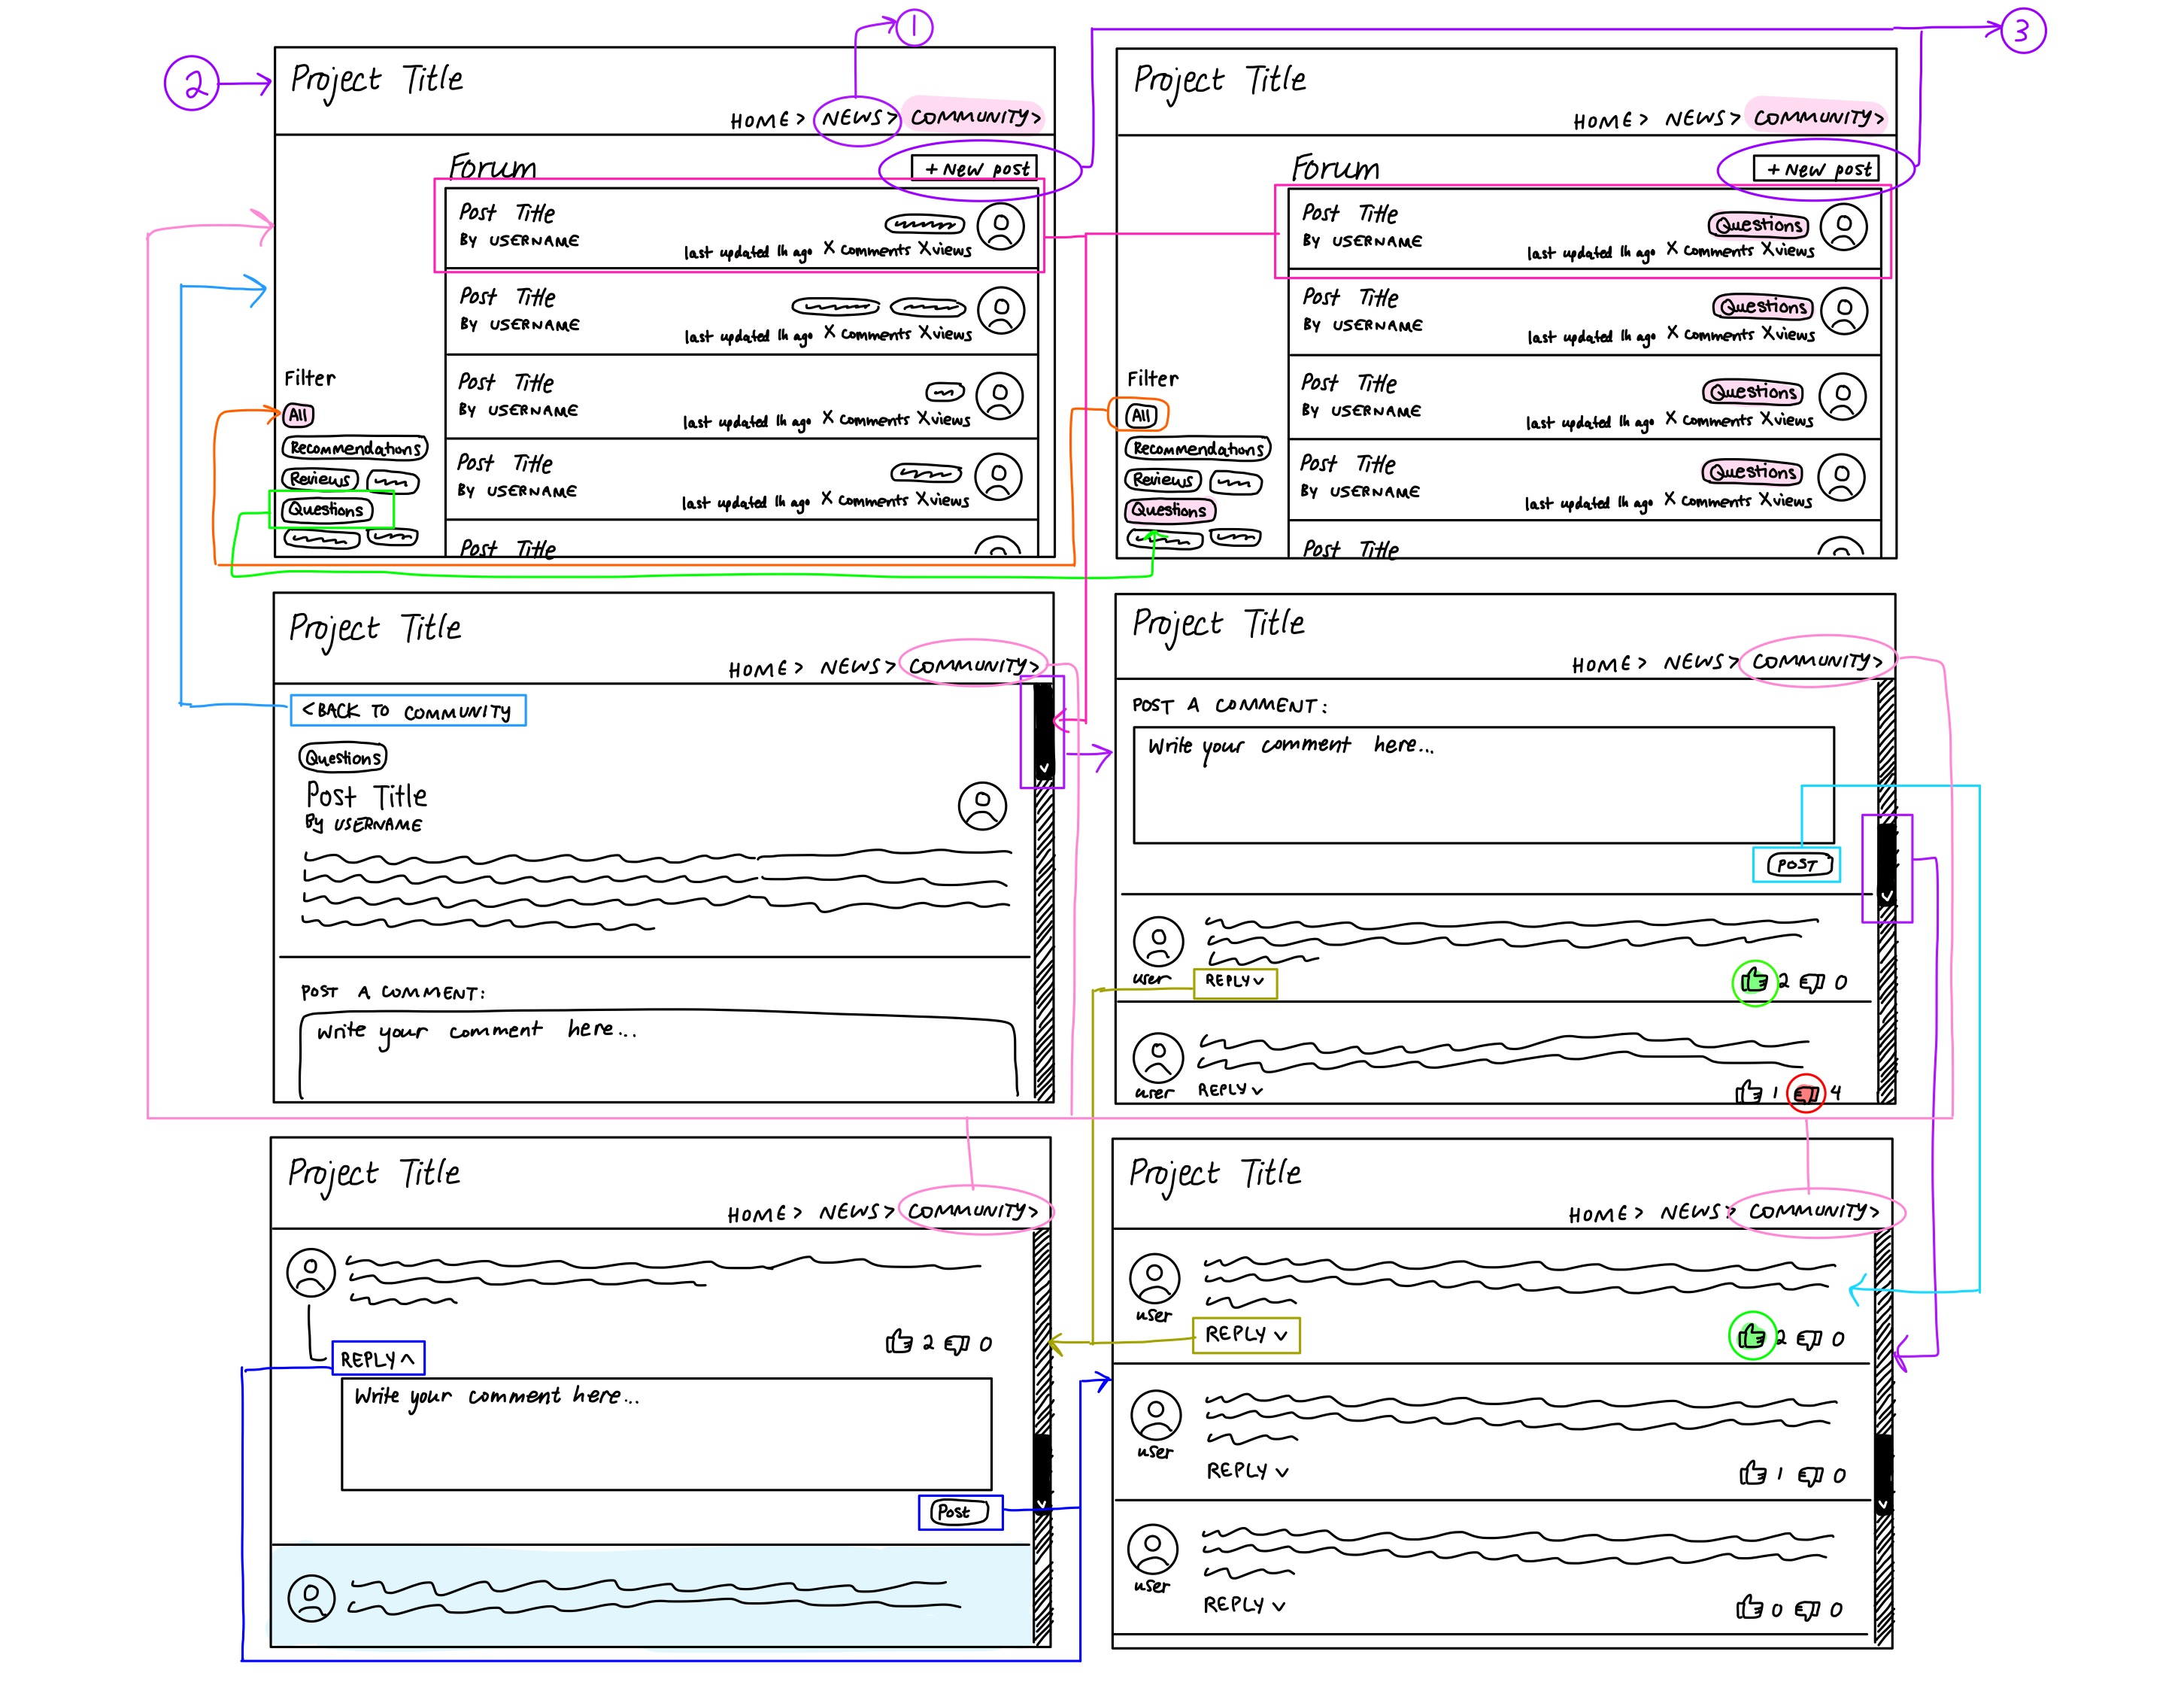 1
3
2
Project Title
HOME > NEWS > COMMUNITY >
Forum
+ New post
Post Title
By USERNAME
last updated 1h ago X comments X views
Post Title
By USERNAME
last updated 1h ago X comments X views
Post Title
By USERNAME
last updated 1h ago X comments X views
Post Title
By USERNAME
last updated 1h ago X comments X views
Post Title
Filter
All
Recommendations
Reviews
Questions
Project Title
HOME > NEWS > COMMUNITY >
Forum
+ New post
Post Title
Questions
By USERNAME
last updated 1h ago X comments X views
Post Title
Questions
By USERNAME
last updated 1h ago X comments X views
Post Title
Questions
By USERNAME
last updated 1h ago X comments X views
Post Title
Questions
By USERNAME
last updated 1h ago X comments X views
Post Title
Filter
All
Recommendations
Reviews
Questions
Project Title
HOME > NEWS > COMMUNITY >
< BACK TO COMMUNITY
Questions
Post Title
By USERNAME
POST A COMMENT:
Write your comment here...
Project Title
HOME > NEWS > COMMUNITY >
POST A COMMENT:
Write your comment here...
POST
user
REPLY v
2 0
user
REPLY v
1 4
Project Title
HOME > NEWS > COMMUNITY >
2 0
REPLY ^
Write your comment here...
Post
Project Title
HOME > NEWS > COMMUNITY >
user
REPLY v
2 0
user
REPLY v
1 0
user
REPLY v
0 0